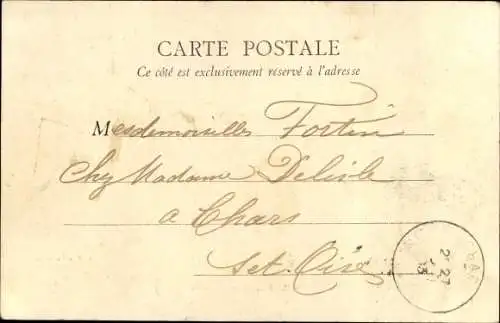 CARTE POSTALE
Ce côté est exclusivement réservé à l'adresse
Mesdemoiselles Fortin
Chez Madame Delisle
a Chars
Set. Oise